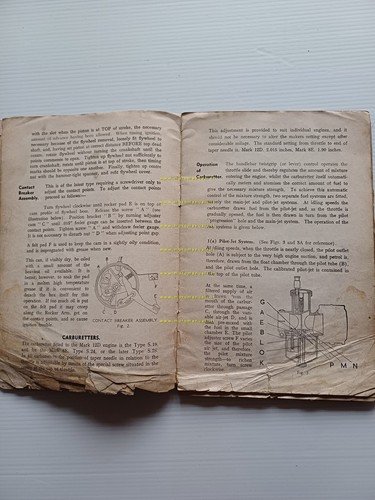 with the slot when the piston is at TOP of stroke, the necessary
amount of advance having been allowed. When timing ignition,
necessary because of the flywheel removal, loosely fit flywheel to
shaft, and, having set piston at correct distance BEFORE top dead
centre, rotate flywheel without turning the crankshaft until the
points commence to open. Tighten up flywheel nut sufficiently to
turn crankshaft, rotate until piston is at top of stroke, then timing
marks should be opposite one another. Finally, tighten up centre
nut with the hammer-tight spanner, and refit flywheel cover.
Contact
Breaker
Assembly.
This is of the latest type requiring a screwdriver only to
adjust the contact points. To adjust the contact points
proceed as follows:—
Turn flywheel clockwise until rocker pad E is on top of
cam profile of flywheel boss. Release the screw "A" (see
illustration below). Position bracket "B" by turning adjuster
cam "C" until feeler gauge can be inserted between the
contact points. Tighten screw "A" and withdraw feeler gauge.
It is not necessary to disturb nut "D" when adjusting point gap.
A felt pad F is used to keep the cam in a slightly oily condition,
and is impregnated with grease when new.
This can, if visibly dry, be oiled
with a small amount of the
heaviest oil available. It is
better however, to soak the pad
in a molten high temperature
grease if it is convenient to
detach the box itself for this
operation. If too much oil is put
on the felt pad it may creep
along the Rocker Arm, get on
the contact points, and so cause
ignition trouble.
CONTACT BREAKER ASSEMBLY.
Fig. 2.
CARBURETTERS.
The carburetter fitted to the Mark 12D engine is the Type S.19,
and to the Mark 8E, Type S.24, or the later Type S.25.
In all variants the position of taper needle in relation to the
throttle is adjustable by means of the special screw situated in the
This adjustment is provided to suit individual engines, and it
should not be necessary to alter the makers setting except after
considerable mileage. The standard setting from throttle to end of
taper needle is, Mark 12D, 2.015 inches, Mark 8E, 1.90 inches.
Operation
of
Carburetter.
The handlebar twistgrip (or lever) control operates the
throttle slide and thereby regulates the amount of mixture
entering the engine, whilst the carburetter itself automati-
cally meters and atomises the correct amount of fuel to
give the necessary mixture strength. To achieve the automatic
control of the mixture strength, two separate fuel systems are fitted,
namely the main-jet and pilot-jet systems. At idling speeds the
carburetter draws fuel from the pilot-jet and, as the throttle is
gradually opened, the fuel is then drawn in turn from the pilot
"progression" hole and the main-jet system. The operation of the
two systems is given below.
(a) Pilot-Jet System. (See Figs. 3 and 3A for reference).
At idling speeds, when the throttle is nearly closed, the pilot outlet
hole (A) is subject to the very high engine suction, and petrol is,
therefore, drawn from the float chamber through the pilot tube (B),
and the pilot outlet hole. The calibrated pilot-jet is contained in
the top of the pilot tube.
At the same time, a
filtered supply of air
is drawn from the
mouth of the carbur-
etter through passage
C, through the vari-
able air-jet D, and is
then pre-mixed with
the fuel in the small
chamber E. The pilot
adjuster screw F varies
the size of the pilot
air jet, and therefore,
the pilot mixture
strength—to richen
mixture, turn screw
clockwise.
G
A
E
B
L
O
K
P M N
Fig. 3